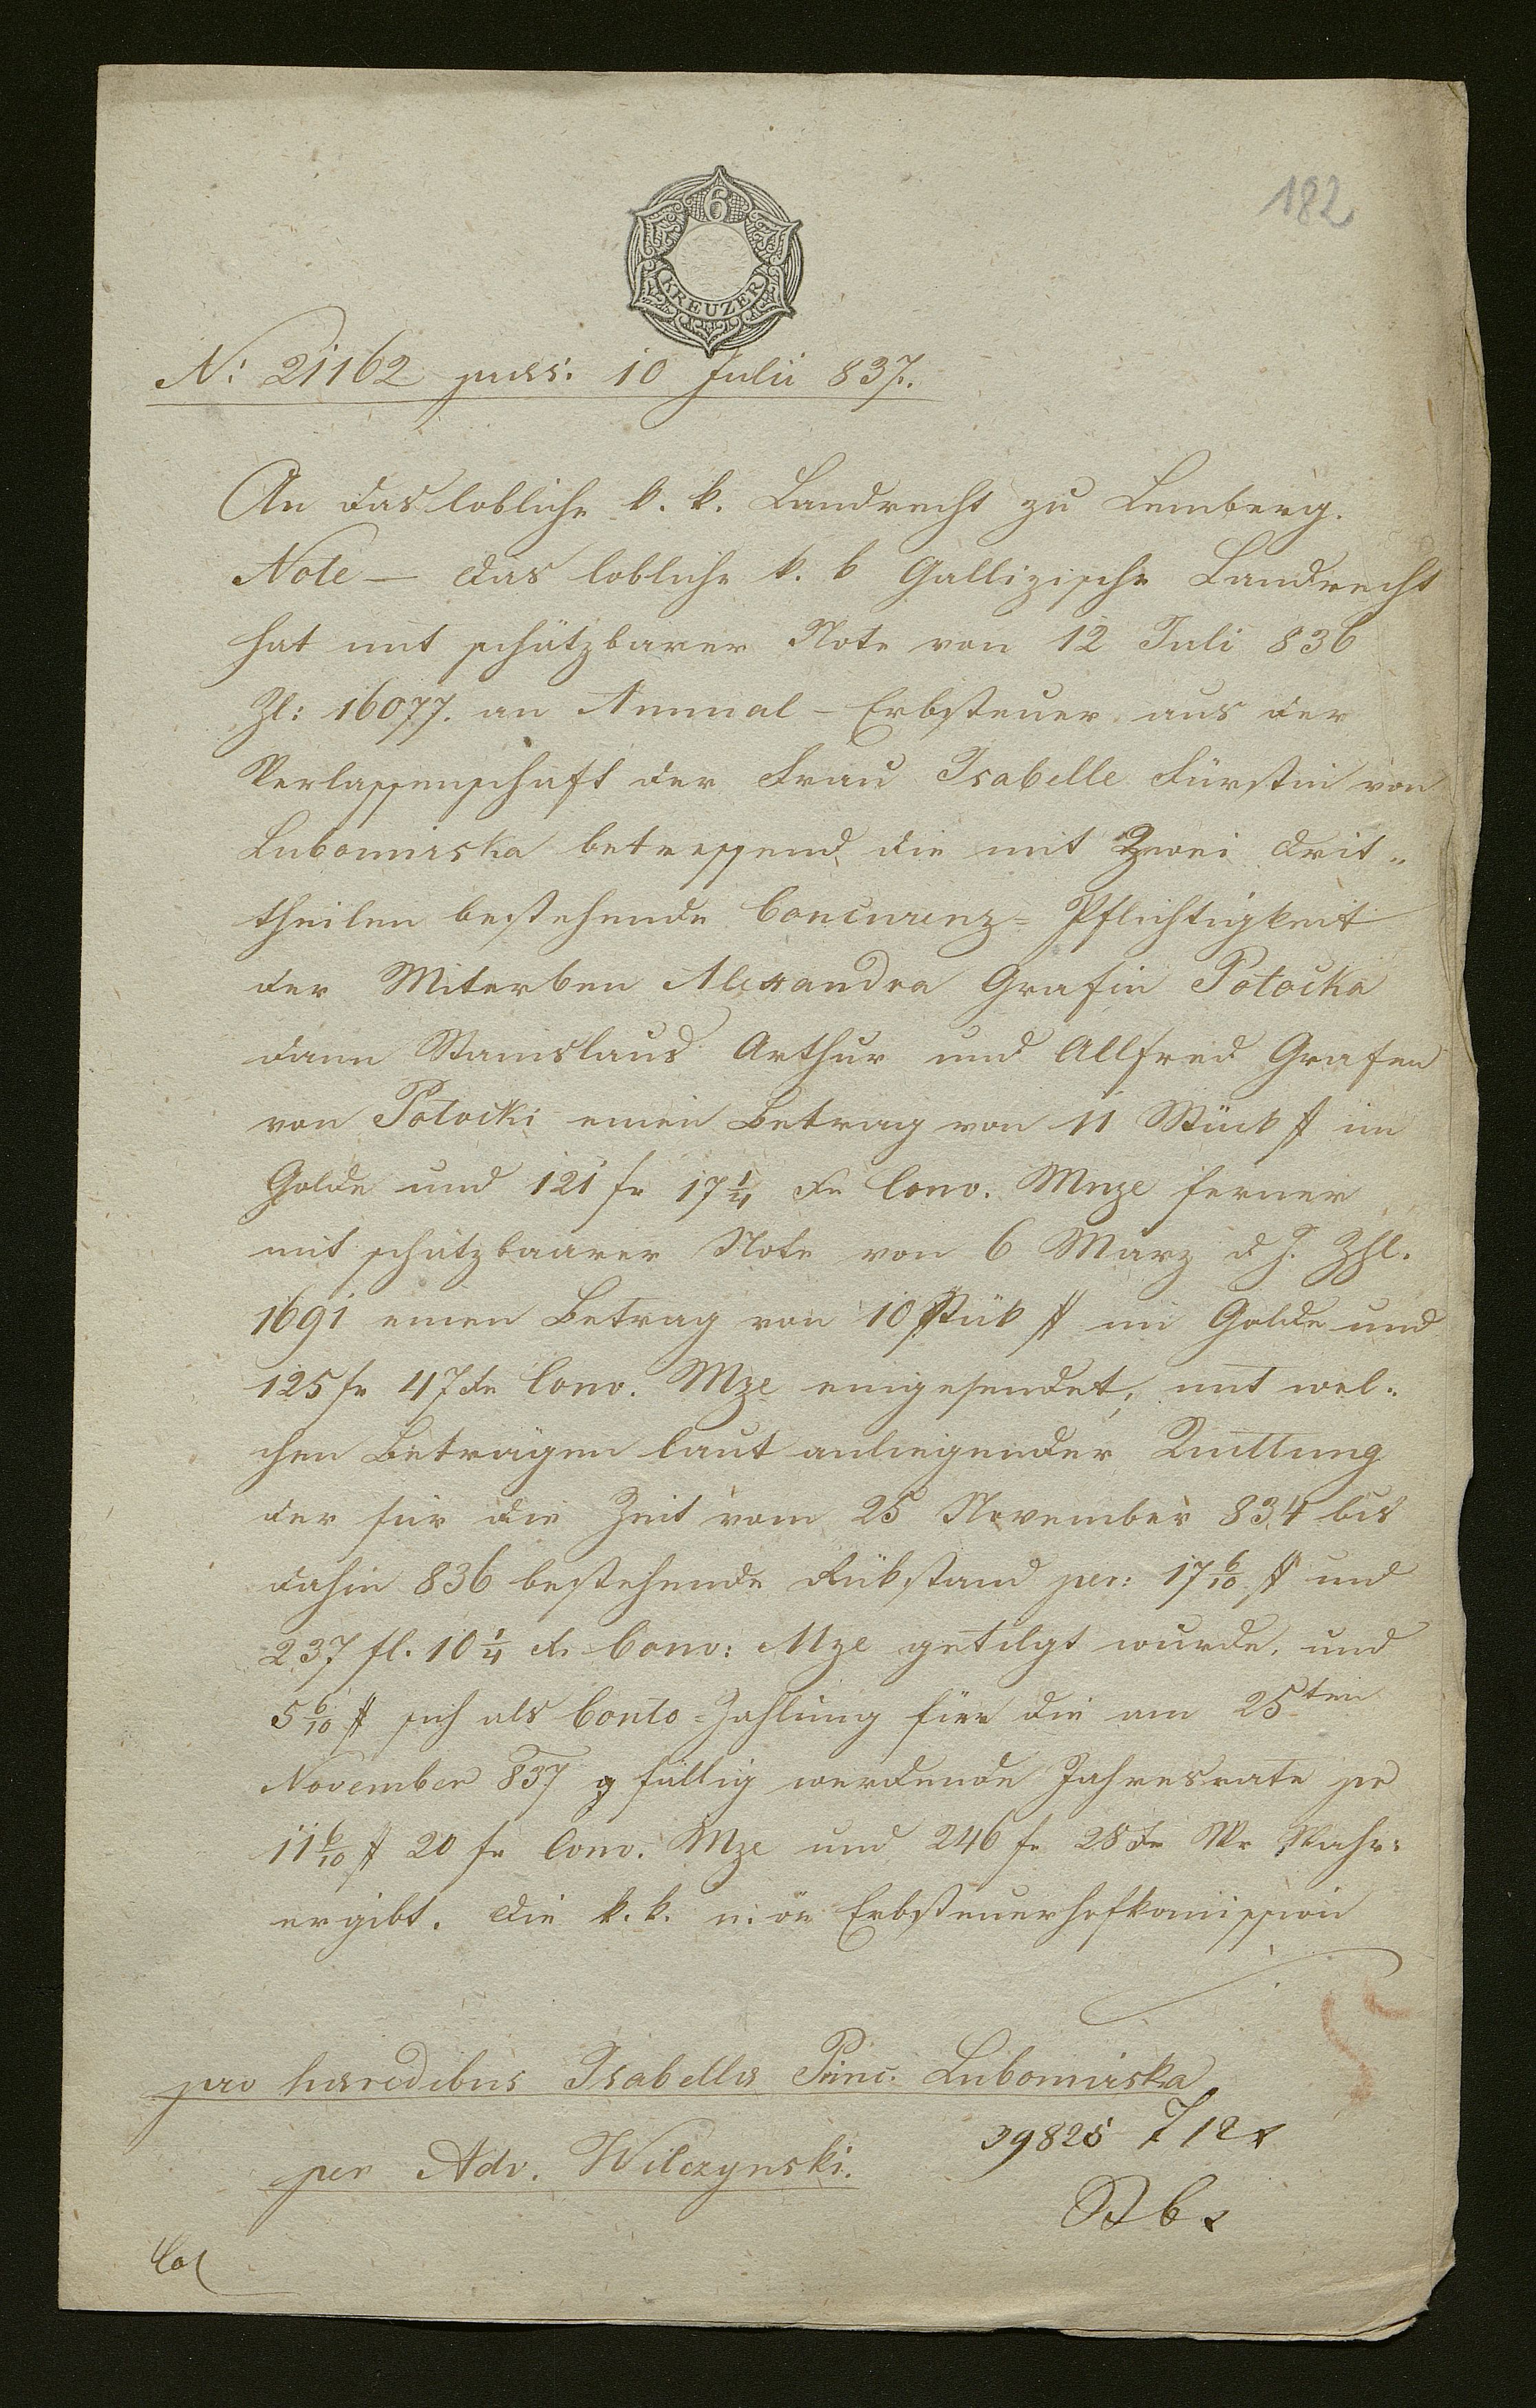 182
6
KREUZER
N: 21162 præs: 10 Julii 837.
An das lobliche k. k. Landrecht zu Lemberg.
Note — das lobliche k. k Gallizische Landrecht
hat mit schätzbarer Note von 12 Juli 836
Zl: 16077. an Annual-Erbsteuer aus der
Verlassenschaft der Frau Isabelle Fürstin von
Lubomirska betreffend die mit Zwei drit„
theilen bestehende Concurenz-Pflichtigkeit
der Miterben Alexandra Grafin Potocka
dann Stanislaus Arthur und Allfred Grafen
von Potocki einen Betrag von 11 Stück # im
Golde und 121 fr 17 1/4 xr Conv. Mnze ferner
mit schätzbaarer Note von 6 Marz d J. Zhl.
1691 einen Betrag von 10 Stük # im Golde und
125 fr 47 xr Conv. Mze eingesendet, mit wel„
chen Beträgen laut anliegender Quittung
der für die Zeit vom 25 November 834 bis
dahin 836 bestehende Rükstand per: 17 6/10 # und
237 fl. 10 1/4 x. Conv: Mze getilgt wurde, und
5 6/10 # sich als Conto-Zahlung für die am 25ten
November 837 fällig werdende Jahresrate pr
11 6/10 # 20 fr Conv. Mze und 246 fr 28 xr Wr Wahr:
ergibt. die k. k. n: ör Erbsteuerhofkomission
pro hæredibus Isabellæ Princ. Lubomirska
per Adv. Wilczynski.
39825
Col